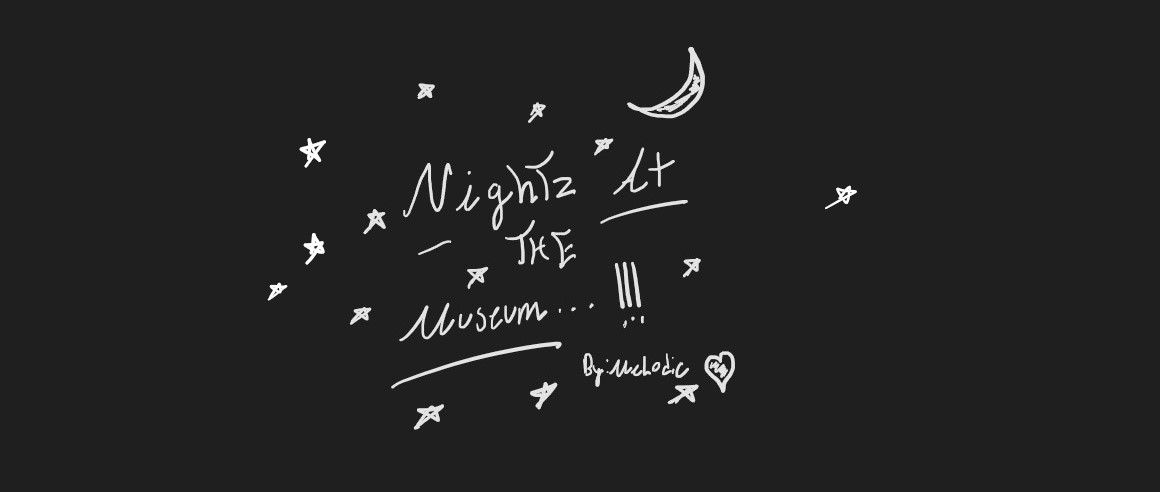 Nightz At
THE
Museum... !!!
By: Melodic